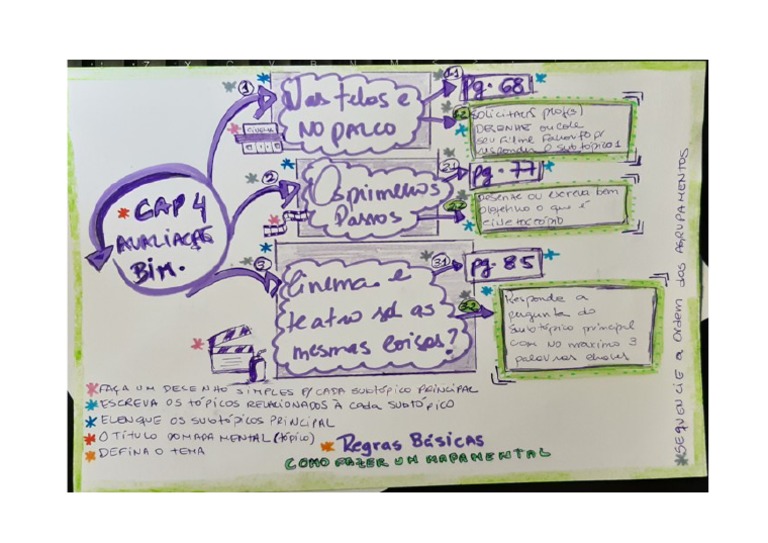 1
Nas telas e
NO PALCO
1.1
Pg. 68
1.2
DESENHE ou cole
seu filme favorito e
responda o subtópico 1
* CAP 4
AVALIAÇÃO
BIM.
2
Os primeiros
Passos
2.1
pg. 77
2.2
Desenhe ou escreva bem
objetivo o que é
cinetoscópio
3
Cinema e
teatro são as
mesmas coisas?
3.1
pg. 85
3.2
Responda a
pergunta do
subtópico principal
com no máximo 3
palavras chaves
* SEQUENCIE a Ordem dos AGRUPAMENTOS
* FAÇA UM DESENHO SIMPLES P/ CADA SUBTÓPICO PRINCIPAL
* ESCREVA OS TÓPICOS RELACIONADOS À CADA SUBTÓPICO
* ELENQUE OS SUBTÓPICOS PRINCIPAL
* O TÍTULO DO MAPA MENTAL (tópico)
* DEFINA O TEMA
* Regras Básicas
COMO FAZER UM MAPA MENTAL